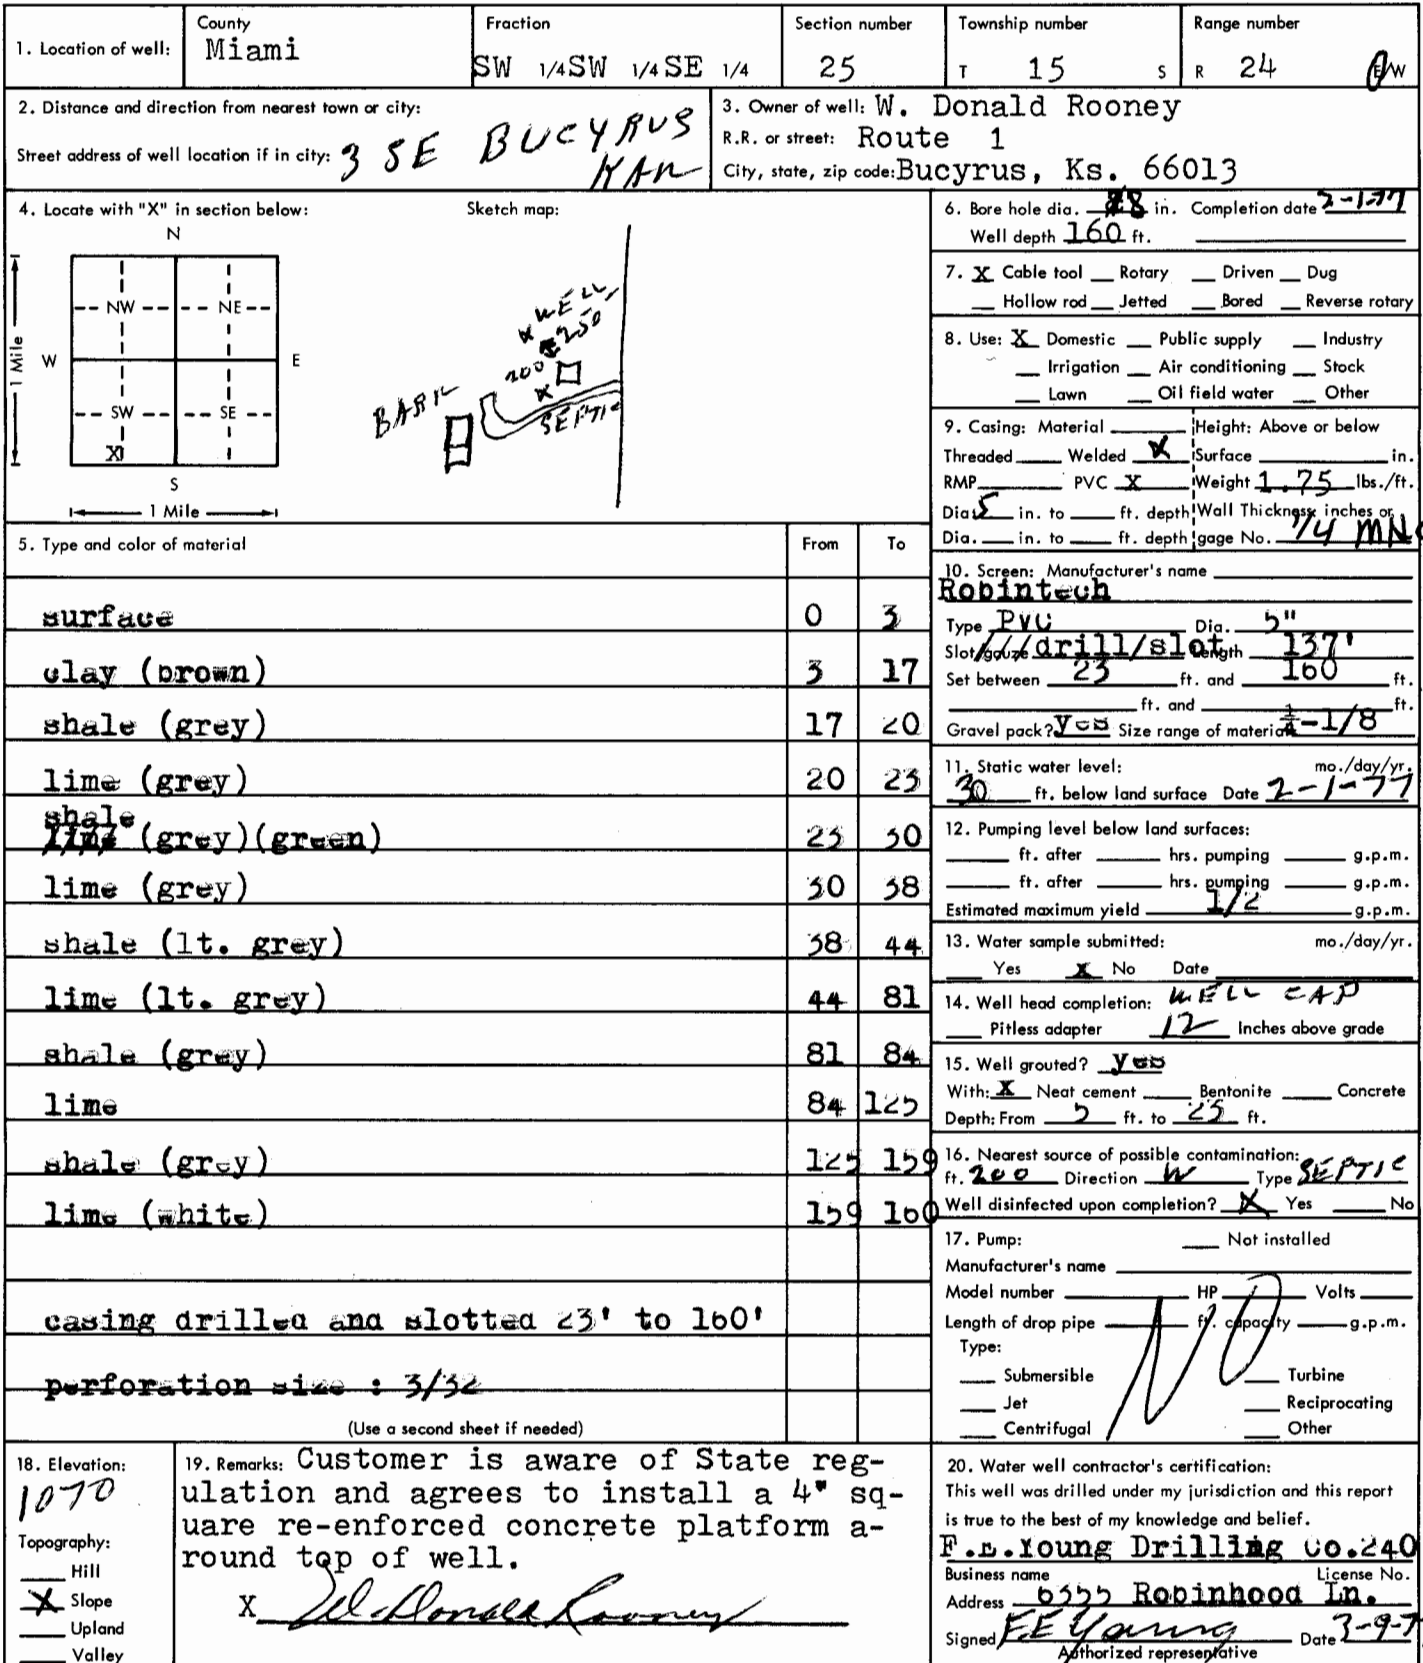 1. Location of well:
County
Miami
Fraction
SW 1/4 SW 1/4 SE 1/4
Section number
25
Township number
T 15 S
Range number
R 24 E/W
2. Distance and direction from nearest town or city:
Street address of well location if in city: 3 SE BUCYRUS
KAN
3. Owner of well: W. Donald Rooney
R.R. or street: Route 1
City, state, zip code: Bucyrus, Ks. 66013
4. Locate with "X" in section below:
N
NW NE
W E
SW SE
X
S
1 Mile
1 Mile
Sketch map:
WELL
250
200
X
SEPTIC
BARN
5. Type and color of material From To
surface 0 3
clay (brown) 3 17
shale (grey) 17 20
lime (grey) 20 23
shale
lime (grey)(green) 23 30
lime (grey) 30 38
shale (lt. grey) 38 44
lime (lt. grey) 44 81
shale (grey) 81 84
lime 84 125
shale (grey) 125 159
lime (white) 159 160
casing drilled and slotted 23' to 160'
perforation size : 3/32
(Use a second sheet if needed)
6. Bore hole dia. 8 in. Completion date 2-1-77
Well depth 160 ft.
7. X Cable tool Rotary Driven Dug
Hollow rod Jetted Bored Reverse rotary
8. Use: X Domestic Public supply Industry
Irrigation Air conditioning Stock
Lawn Oil field water Other
9. Casing: Material Height: Above or below
Threaded Welded X Surface in.
RMP PVC X Weight 1.75 lbs./ft.
Dia. 5 in. to ft. depth Wall Thickness: inches or
Dia. in. to ft. depth gage No. 1/4
10. Screen: Manufacturer's name
Robintech
Type PVC Dia. 5"
Slot/gauze drill/slot Length 137'
Set between 23 ft. and 160 ft.
ft. and ft.
Gravel pack? yes Size range of material 1/4-1/8
11. Static water level: mo./day/yr.
30 ft. below land surface Date 2-1-77
12. Pumping level below land surfaces:
ft. after hrs. pumping g.p.m.
ft. after hrs. pumping g.p.m.
Estimated maximum yield 1/2 g.p.m.
13. Water sample submitted: mo./day/yr.
Yes X No Date
14. Well head completion: WELL CAP
Pitless adapter 12 Inches above grade
15. Well grouted? yes
With: X Neat cement Bentonite Concrete
Depth: From 5 ft. to 25 ft.
16. Nearest source of possible contamination:
ft. 200 Direction W Type SEPTIC
Well disinfected upon completion? X Yes No
17. Pump: Not installed
Manufacturer's name
Model number HP Volts
Length of drop pipe ft. capacity g.p.m.
NO
Type:
Submersible Turbine
Jet Reciprocating
Centrifugal Other
18. Elevation:
1070
Topography:
Hill
X Slope
Upland
Valley
19. Remarks: Customer is aware of State reg-
ulation and agrees to install a 4" sq-
uare re-enforced concrete platform a-
round top of well.
X W. Donald Rooney
20. Water well contractor's certification:
This well was drilled under my jurisdiction and this report
is true to the best of my knowledge and belief.
F.E.Young Drilling Co.240
Business name License No.
Address 6355 Robinhood Ln.
Signed F E Young Date 3-9-7
Authorized representative